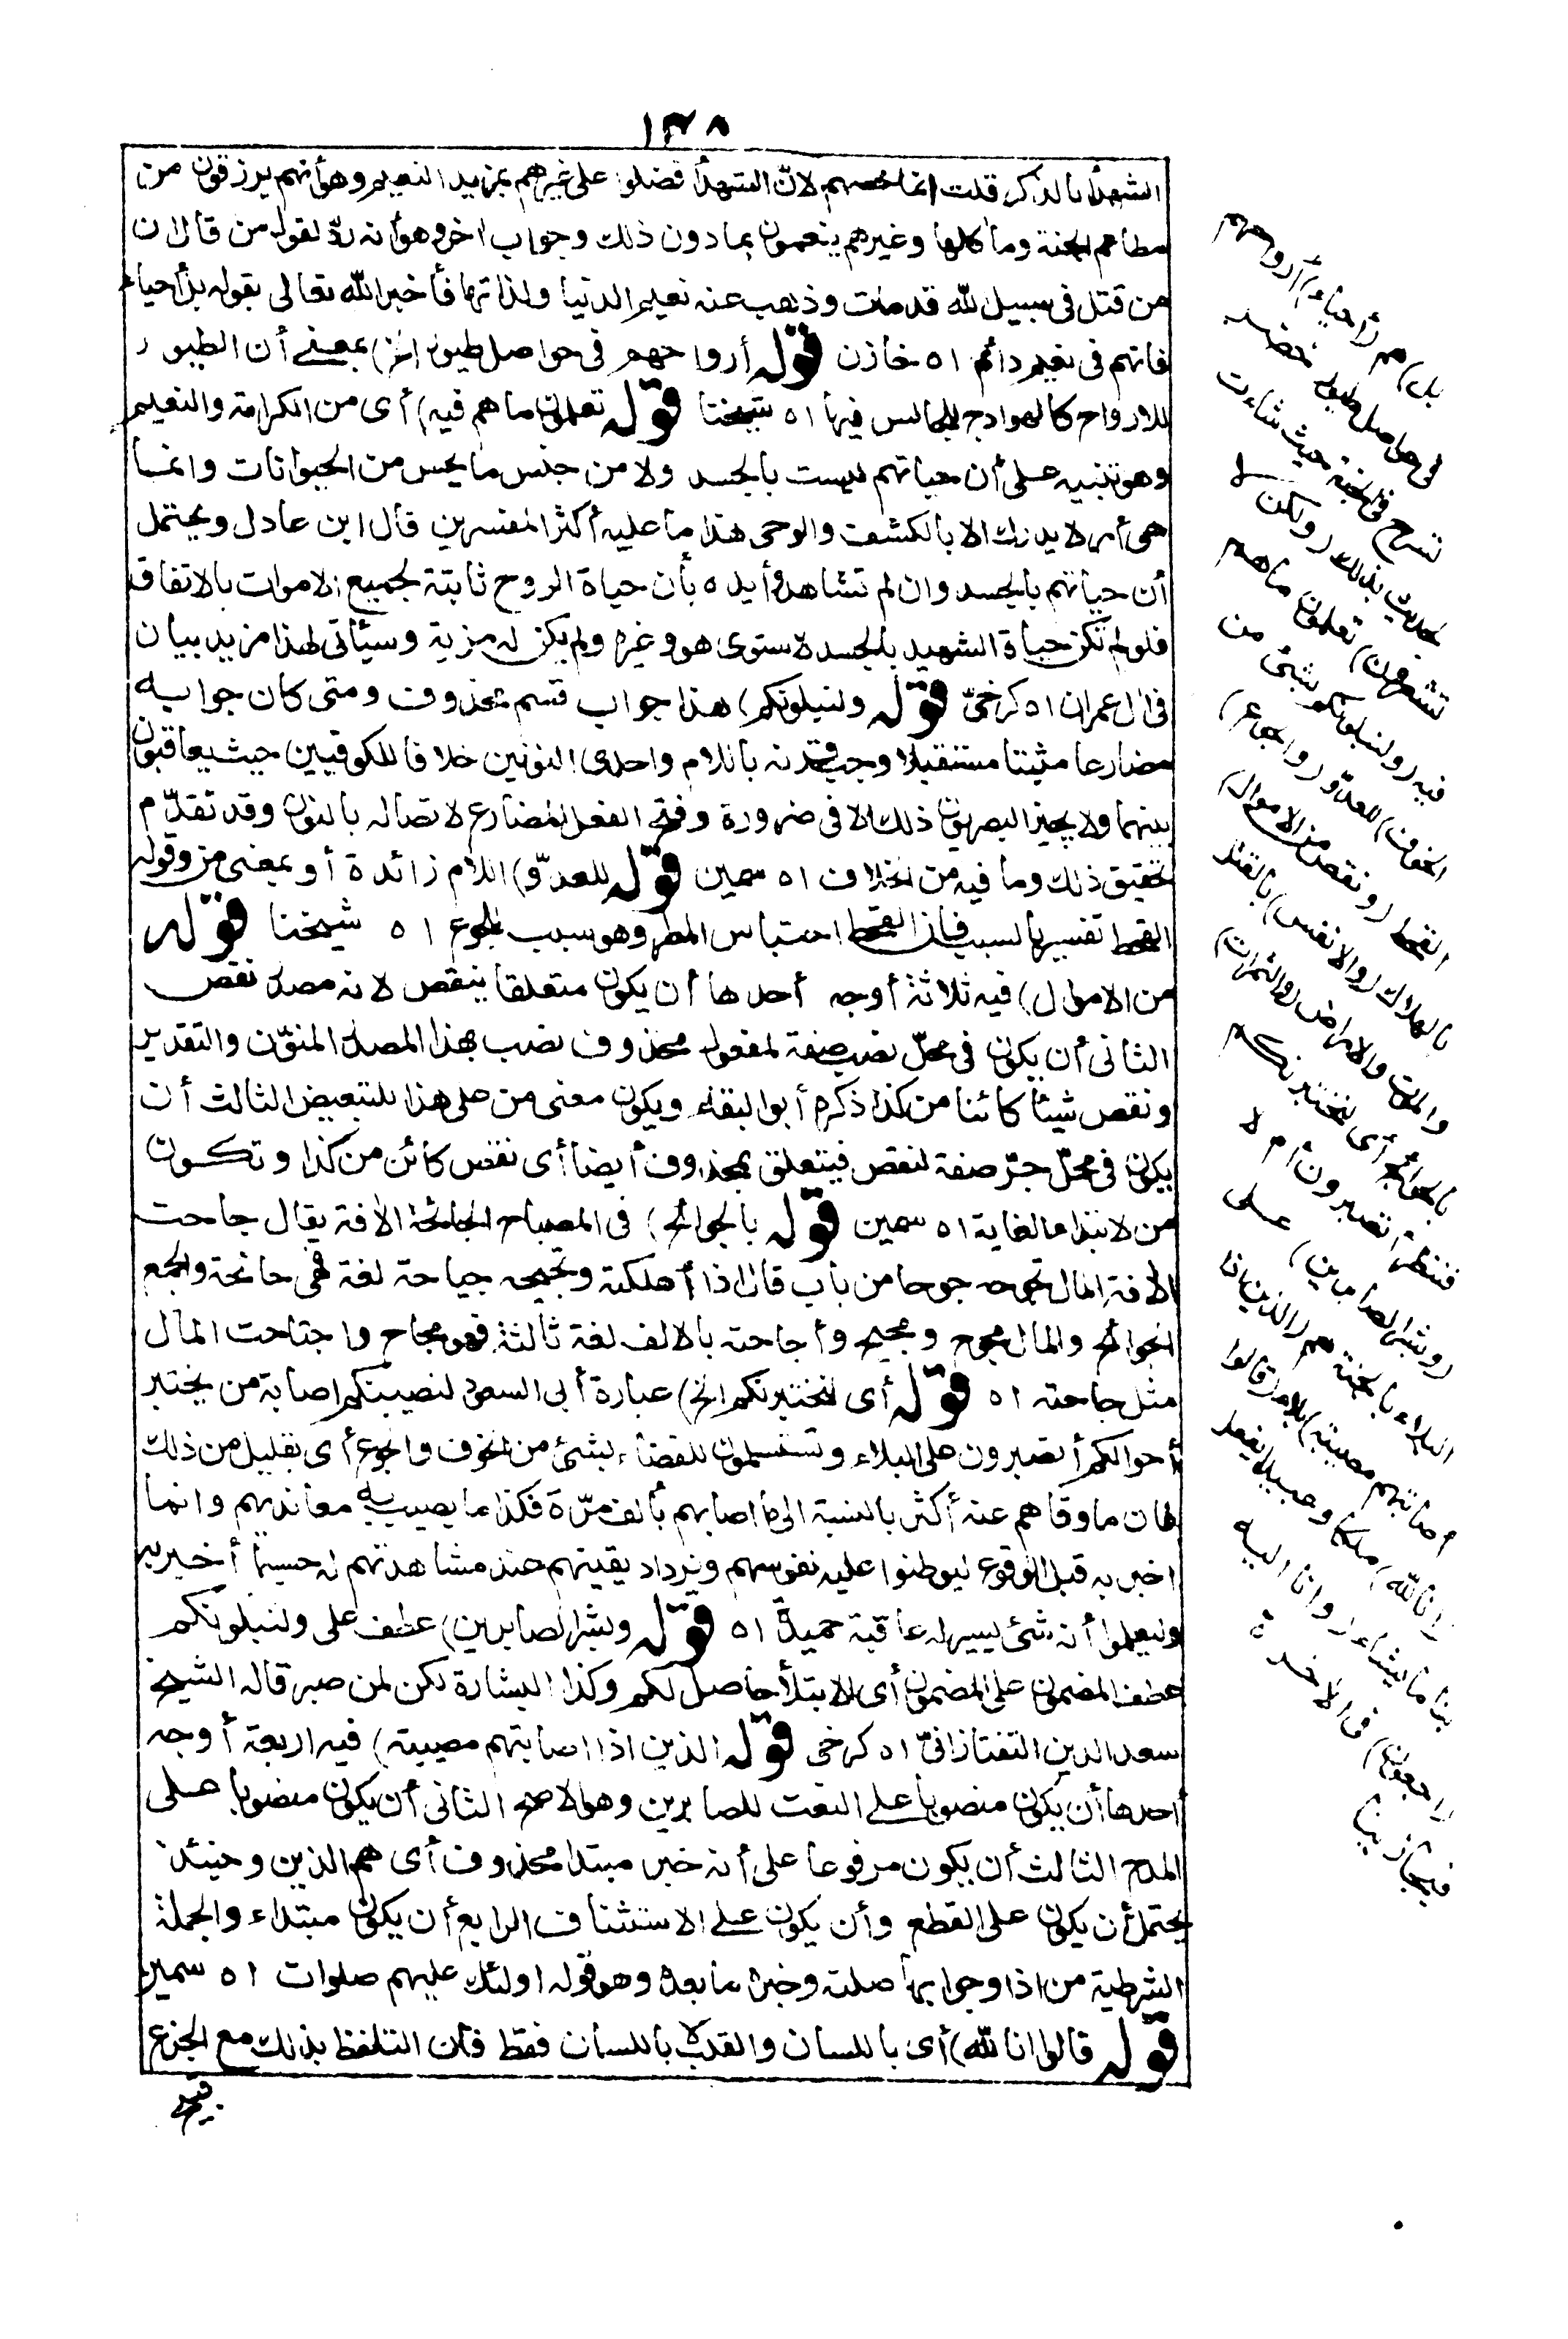 ١٢٨
الشهدأ بالذكر قلت انما خصهم لانّ الشهدأ فضلوا على غيرهم بمزيد النعيم وهو أنهم يرزقون من
مطاعم الجنة ومأكلها وغيرهم ينعمون بمادون ذلك وجواب اخر وهو أنه ردّ لقول من قال ان
من قتل فى سبيل الله قد مات وذهب عنه نعيم الدنيا ولذاتها فأخبر الله تعالى بقوله بل أحياء
فانهم فى نعيم دائم اه خازن قوله أرواحهم فى حواصل طيور الخ) بمعنے أن الطيور
للارواح كالهوادج للجالس فيها اه شيخنا قوله تعلمون ما هم فيه) أى من الكرامة والنعيم
وهو تنبيه على أن حياتهم ليست بالجسد ولا من جنس ما يحس من الحيوانات وانما
هى أمر لا يدرك الا بالكشف والوحى هذا ما عليه أكثر المفسرين قال ابن عادل ويحتمل
أن حياتهم بالجسد وان لم تشاهد وأيده بأن حياة الروح ثابتة لجميع الاموات بالاتفاق
فلو لم تكن حياة الشهيد بالجسد لاستوى هو وغيره ولم يكن له مزية وسيأتى لهذا مزيد بيان
فى ال عمران اه كرخىّ قوله ولنبلونكم) هذا جواب قسم محذوف ومتى كان جوابه
مضارعا مثبتا مستقبلا وجب قرنه باللام واحدى النونين خلافا للكوفيين حيث يعاقبون
بينهما ولا يجيز البصريون ذلك الا فى ضرورة وفتح الفعل المضارع لاتصاله بالنون وقد تقدّم
تحقيق ذلك وما فيه من الخلاف اه سمين قوله للعدوّ) اللام زائدة أو بمعنى من وقوله
القحط تفسير بالسبب فان القحط احتباس المطر وهو سبب للجوع اه شيخنا قوله
من الاموال) فيه ثلاثة أوجه أحدها أن يكون متعلقا بنقص لانه مصدر نقص
الثانى أن يكون فى محلّ نصب صفة لمفعول محذوف نصب بهذا المصدر المنوّن والتقدير
ونقص شيئا كائنا من كذا ذكره أبو البقاء ويكون معنى من على هذا للتبعيض الثالث أن
يكون فى محلّ جرّ صفة لنقص فيتعلق بمحذوف أيضا أى نقص كائن من كذا وتكون
من لابتداء الغاية اه سمين قوله بالجوائح) فى المصباح الجائحة الافة يقال جاحت
الافة المال تجوحه جوحا من باب قال اذا أهلكته وتجيحه جياحة لغة فهى جائحة والجمع
الجوائح والمال مجوح ومجيح وأجاحته بالالف لغة ثالثة فهو مجاح واجتاحت المال
مثل جاحته اه قوله أى لنختبرنكم الخ) عبارة أبى السعود لنصيبنكم اصابة من يختبر
أحوالكم أتصبرون على البلاء وتستسلمون للقضاء بشئ من الخوف والجوع أى بقليل من ذلك
فان ما وقاهم عنه أكثر بالنسبة الى ما اصابهم بألف مرّة فكذا ما يصيب به معاندهم وانما
اخبر به قبل الوقوع ليوطنوا عليه نفوسهم ويزداد يقينهم عند مشاهدتهم له حسبما أخبر به
وليعلموا أنه شئ يسير له عاقبة حميدة اه قوله وبشر الصابرين) عطف على ولنبلونكم
عطف المضمون على المضمون أى الابتلأ حاصل لكم وكذا البشارة لكن لمن صبر قاله الشيخ
سعد الدين التفتازانىّ اه كرخى قوله الذين اذا اصابتهم مصيبة) فيه اربعة أوجه
أحدها أن يكون منصوبا على النعت للصابرين وهو الاصح الثانى أن يكون منصوبا على
المدح الثالث أن يكون مرفوعا على أنه خبر مبتدا محذوف أى هم الذين وحينئذ
يحتمل أن يكون على القطع وأن يكون على الاستئناف الرابع أن يكون مبتداء والجملة
الشرطية من اذا وجوابها صلته وخبره ما بعده وهو قوله اولئك عليهم صلوات اه سمين
قوله قالوا انا لله) أى باللسان والقلب لا باللسان فقط فان التلفظ بذلك مع الجزع
بل) هم (أحياء) أرواحهم
فى حواصل طيور خضر
تسرح فى الجنة حيث شاءت
لحديث بذلك (ولكن لا
تشعرون) تعلمون ما هم
فيه (ولنبلونكم بشئ من
الخوف) للعدوّ (والجوع)
القحط (ونقص من الاموال)
بالهلاك (والانفس) بالقتل
والموت والامراض (والثمرات)
بالجوائح أى لنختبرنكم
فننظر أتصبرون أم لا
(وبشر الصابرين) على
البلاء بالجنة هم (الذين اذا
أصابتهم مصيبة) بلاء (قالوا
انا لله) ملكا وعبيدا يفعل
بنا ما يشاء (وانا اليه
راجعون) فى الاخرة
فيجازينا